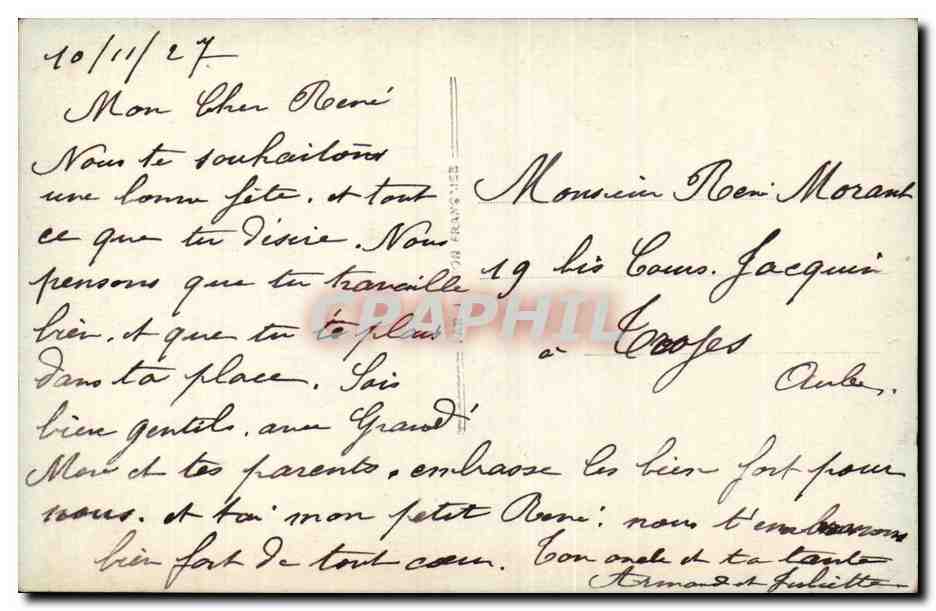 10/11/27.
Mon Cher René
Nous te souhaitons
une bonne fête. et tout
ce que tu désire. Nous
pensons que tu travaille
bien. et que tu te plais
dans ta place. Sois
bien gentils. avec Grand'
Mère et tes parents. embrasse les bien fort pour
nous. et toi mon petit René. nous t'embrassons
bien fort de tout cœur. Ton oncle et ta tante
Armand et Juliette
Monsieur René Morant
19 bis Cours. Jacquin
à Troyes
Aube.
CPAPHIL